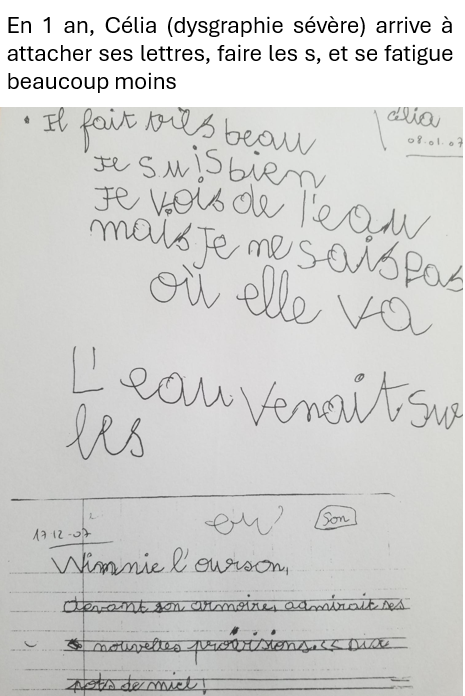 En 1 an, Célia (dysgraphie sévère) arrive à
attacher ses lettres, faire les s, et se fatigue
beaucoup moins
Célia
08.01.07
• Il fait très beau
Je suis bien
Je vois de l'eau
mais je ne sais pas
où elle va
L'eau venait sur
les
17 12-07
ou
Son
Winnie l'ourson,
devant son armoire, admirait ses
nouvelles provisions. << Dix
pots de miel !